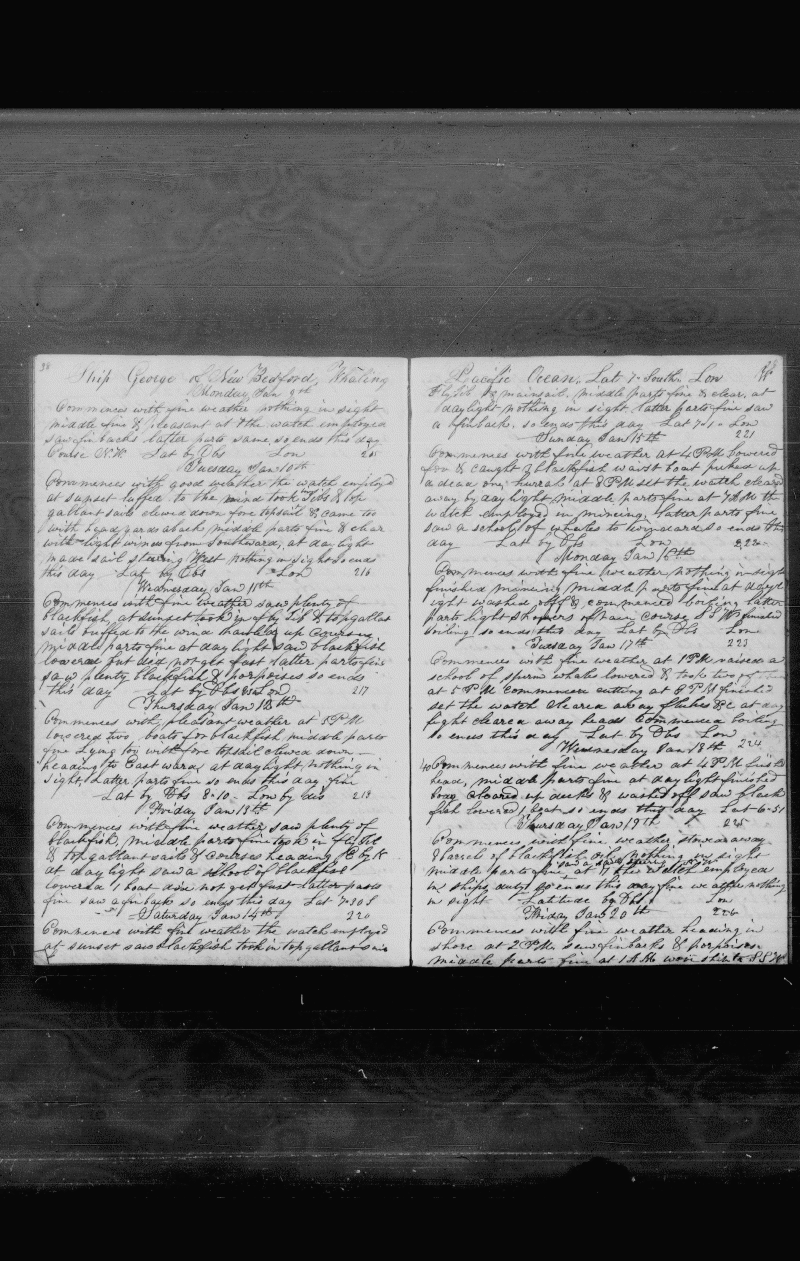 38
Ship George of New Bedford, Whaling
Monday Jan 9th
Commences with fine weather nothing in sight
middle fine & pleasant at 7 the watch employed
saw finbacks latter parts same, so ends this day
Course N.W Lat by Obs Lon 215
Tuesday Jan 10th
Commences with good weather the watch employed
at sunset luffed to the wind took Jibs & top
gallant sails clewed down fore topsail & came too
with head yards aback, middle parts fine & clear
with light winds from Southward, at day light
made sail steering West nothing in sight so ends
this day Lat by Obs Lon 216
Wednesday Jan 11th
Commences with fine weather saw plenty of
blackfish, at sunset took in fly jib & topgallant
sails luffed to the wind hauled up Courses
middle parts fine at day light saw blackfish
lowered but did not get fast latter parts fine
saw plenty blackfish & porpoises so ends
this day Lat by Obs Lon 217
Thursday Jan 12th
Commences with pleasant weather at 5 PM
lowered two boats for blackfish middle parts
fine Lying too with fore topsail clewed down
heading to Eastward at daylight, nothing in
sight, Latter parts fine so ends this day fine
Lat by Obs 8.10 Lon by do 218
Friday Jan 13th
Commences with fine weather saw plenty of
blackfish, middle parts fine took in fly jib
& topgallant sails & Courses heading E by N
at day light saw a school of blackfish
lowered 1 boat did not get fast latter parts
fine saw a finback so ends this day Lat 7.30 S
Saturday Jan 14th 220
Commences with fine weather the watch employed
at sunset saw blackfish took in top gallant sails
Pacific Ocean. Lat 7. South. Lon
Fly jib & mainsail, middle parts fine & clear, at
daylight nothing in sight latter parts fine saw
a finback. so ends this day Lat 7.1 Lon
Sunday Jan 15th 221
Commences with fine weather at 4 PM lowered
for & caught blackfish waist boat picked up
a dead one, hurrah at 8 PM set the watch cleared
away by day light middle parts fine at 7 AM the
watch employed in mincing, latter parts fine
saw a school of whales to windward so ends the
day Lat by Obs Lon 222
Monday Jan 16th
Commences with fine weather nothing in sight
finished mincing middle parts fine at dayl
ight washed off & commenced boiling latter
parts light showers of rain, Course finished
boiling so ends this day Lat by Obs Lon
Tuesday Jan 17th 223
Commences with fine weather at 1 PM raised a
school of sperm whales lowered & took two of them
at 5 PM commenced cutting at 8 PM finished
set the watch cleared away flukes &c at day
light cleared away heads Commenced boiling
so ends this day Lat by Obs Lon
Wednesday Jan 18th 224
Commences with fine weather at 4 PM
head, middle parts fine at day light finished
cleared up decks & washed off saw black
fish lowered 1 boat so ends this day Lat 6.51
Thursday Jan 19th 225
Commences with fine weather, stowed away
8 barrels of blackfish oil nothing in sight
middle parts fine, at 7 the watch employed
in ships duty so ends this day fine weather nothing
in sight Latitude by Obs Lon
Friday Jan 20th 226
Commences with fine weather heading in
shore at 2 PM saw finbacks & porpoises
middle parts fine at 1 AM wore ship to S S W